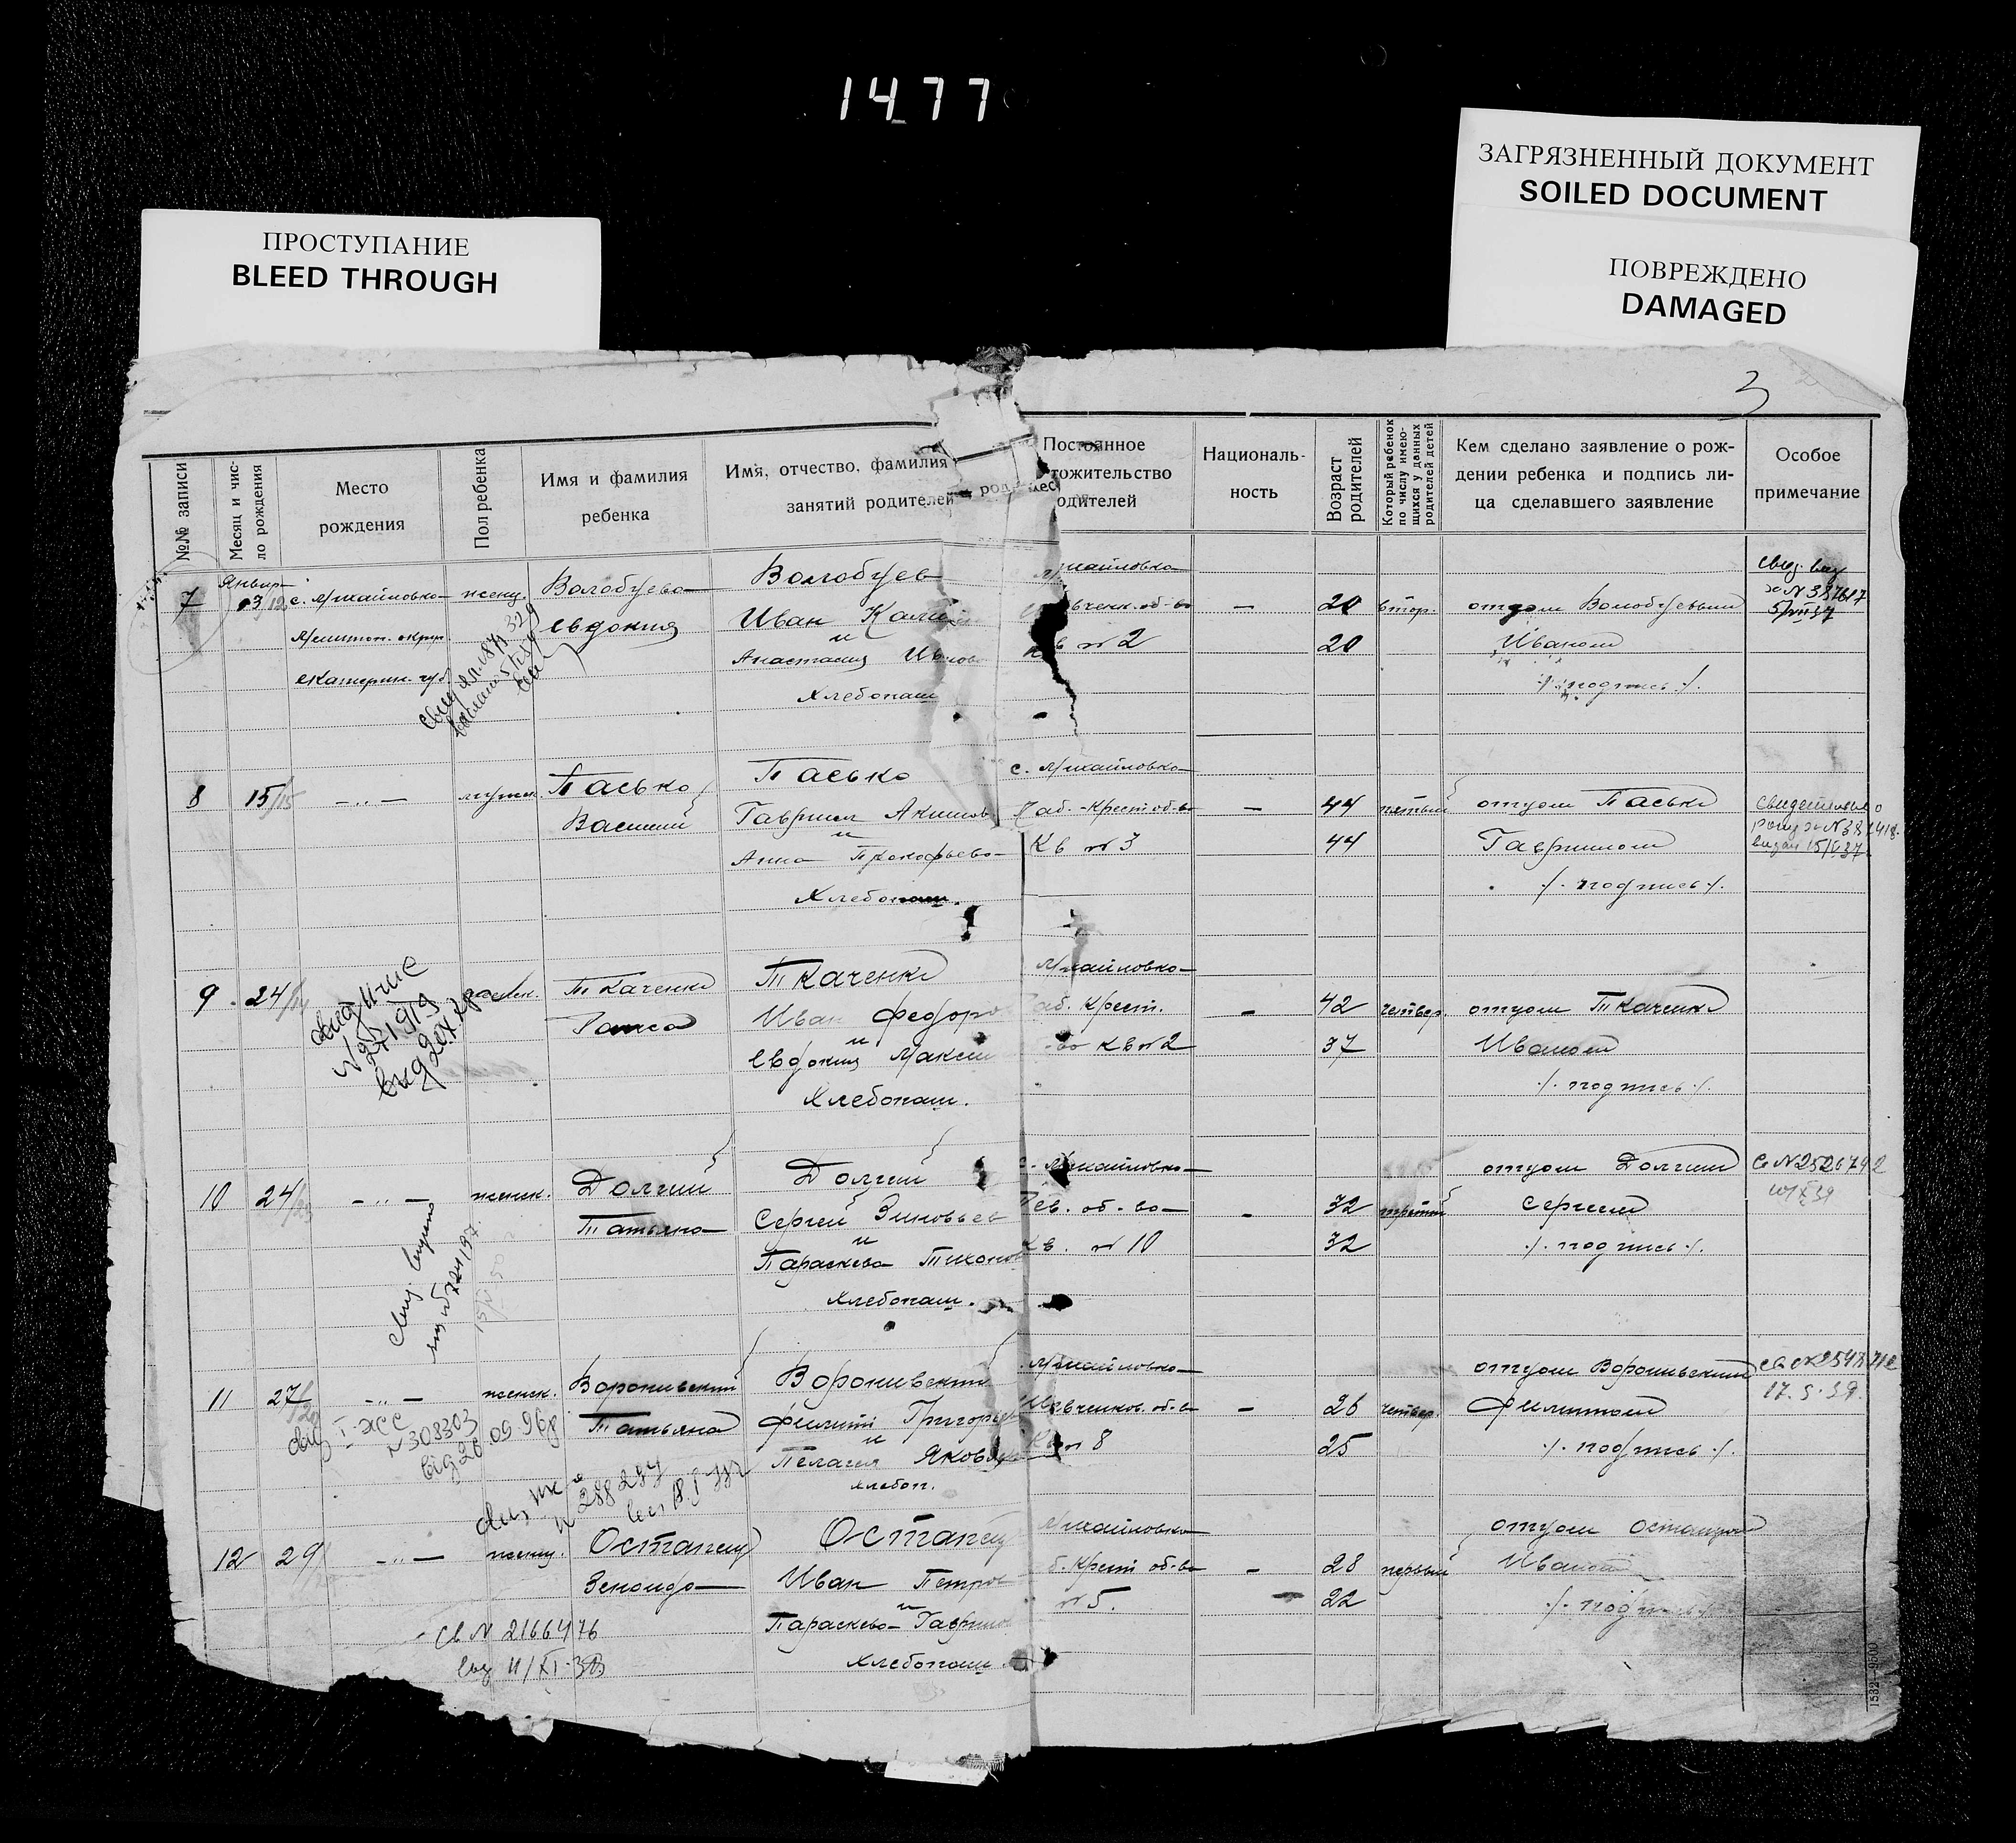 1477
ЗАГРЯЗНЕННЫЙ ДОКУМЕНТ
SOILED DOCUMENT
ПРОСТУПАНИЕ
BLEED THROUGH
ПОВРЕЖДЕНО
DAMAGED
3
№№ записи
Месяц и чис-
ло рождения
Место
рождения
Пол ребенка
Имя и фамилия
ребенка
Имя, отчество, фамилия
занятий родителей
Постоянное
тожительство
одителей
Националь-
ность
Возраст
родителей
Который ребенок
по числу имею-
щихся у данных
родителей детей
Кем сделано заявление о рож-
дении ребенка и подпись ли-
ца сделавшего заявление
Особое
примечание
7
Январ
3/12
с. Михайловка
Мелитоп. округ
Екатерин. губ
женщ.
Волобуева
Евдокия
Волобуев
Иван
и
Анастасия
Хлебопаш
ихайловка
вченк. об-во
№ 2
–
20
20
втор.
отцом Волобуевым
Иваном
/. подпись ./.
№ 387617
8
15/15
— „ —
мужск.
Пасько
Василий
Пасько
Гавриил Акимов
и
Анна Прокофьева
Хлебопаш.
с. Михайловка
Раб.-Крест об-во
Кв № 3
–
44
44
пятый
отцом Пасько
Гавриилом
./. подпись ./.
Свидетельство
выдан 15/V.37
9
24
женск.
Ткаченко
Раиса
Ткаченко
Иван Федоро
и
Евдокия Макси
Хлебопаш.
Михайловка
аб. Крест.
-во Кв № 2
–
42
37
четвер.
отцом Ткаченко
Иваном
./. подпись ./.
№ 271919
10
24
— „ —
женск.
Долгий
Татьяна
Долгий
Сергей Зиновьев
и
Параскева Тихонов
Хлебопаш.
с. Михайловка
Рев. об-во
Кв. № 10
–
32
32
третий
отцом Долгим
Сергеем
./. подпись ./.
Св N 2526792
11
27
— „ —
женск.
Воронивский
Татьяна
Воронивский
Филипп Григорьев
и
Пелагея Яков
хлебоп.
Михайловка
Шевченков. об-во
Кв № 8
–
26
25
четвер.
отцом Воронивским
Филиппом
./. подпись ./.
17.5.39.
I-ЖС
N 308303
№ 288287
12
29
— „ —
женщ.
Остапец
Зенаида
Остапец
Иван Петров
и
Параскева Гаврил
Хлебопаш
Михайловка
б. Крест об-во
№ 5.
–
28
22
первый
отцом Остапцом
Иваном
./. подпись ./.
Св N 2166476
11/XI-38
1532—9500